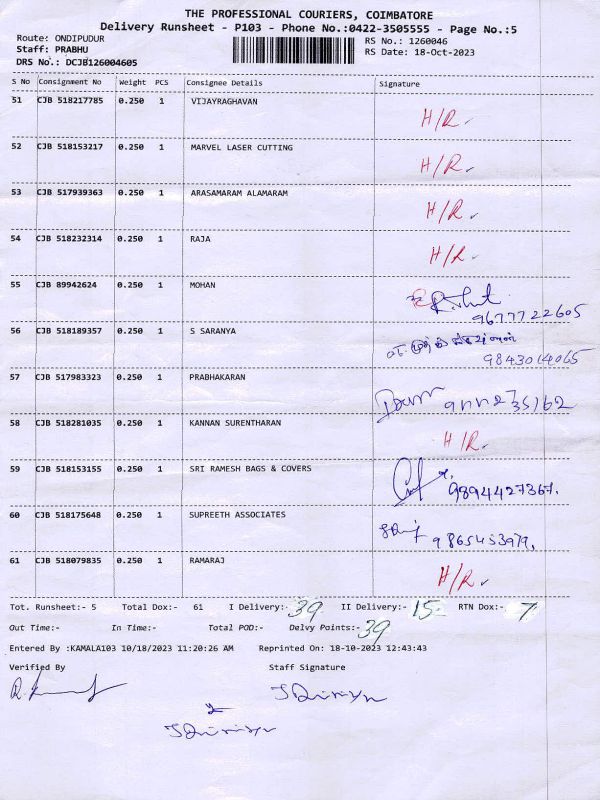 THE PROFESSIONAL COURIERS, COIMBATORE
Delivery Runsheet - P103 - Phone No.:0422-3505555 - Page No.:5
Route: ONDIPUDUR
RS No.: 1260046
Staff: PRABHU
RS Date: 18-Oct-2023
DRS No.: DCJB126004605
S No Consignment No Weight PCS Consignee Details Signature
51 CJB 518217785 0.250 1 VIJAYRAGHAVAN H/R
52 CJB 518153217 0.250 1 MARVEL LASER CUTTING H/R
53 CJB 517939363 0.250 1 ARASAMARAM ALAMARAM H/R
54 CJB 518232314 0.250 1 RAJA H/R
55 CJB 89942624 0.250 1 MOHAN
9677722605
56 CJB 518189357 0.250 1 S SARANYA
9843014065
57 CJB 517983323 0.250 1 PRABHAKARAN
58 CJB 518281035 0.250 1 KANNAN SURENTHARAN H/R
59 CJB 518153155 0.250 1 SRI RAMESH BAGS & COVERS
9894427367.
60 CJB 518175648 0.250 1 SUPREETH ASSOCIATES
9865453979,
61 CJB 518079835 0.250 1 RAMARAJ H/R
Tot. Runsheet:- 5 Total Dox:- 61 I Delivery:- 39 II Delivery:- 15 RTN Dox:- 7
Out Time:- In Time:- Total POD:- Delvy Points:- 39
Entered By :KAMALA103 10/18/2023 11:20:26 AM Reprinted On: 18-10-2023 12:43:43
Verified By Staff Signature